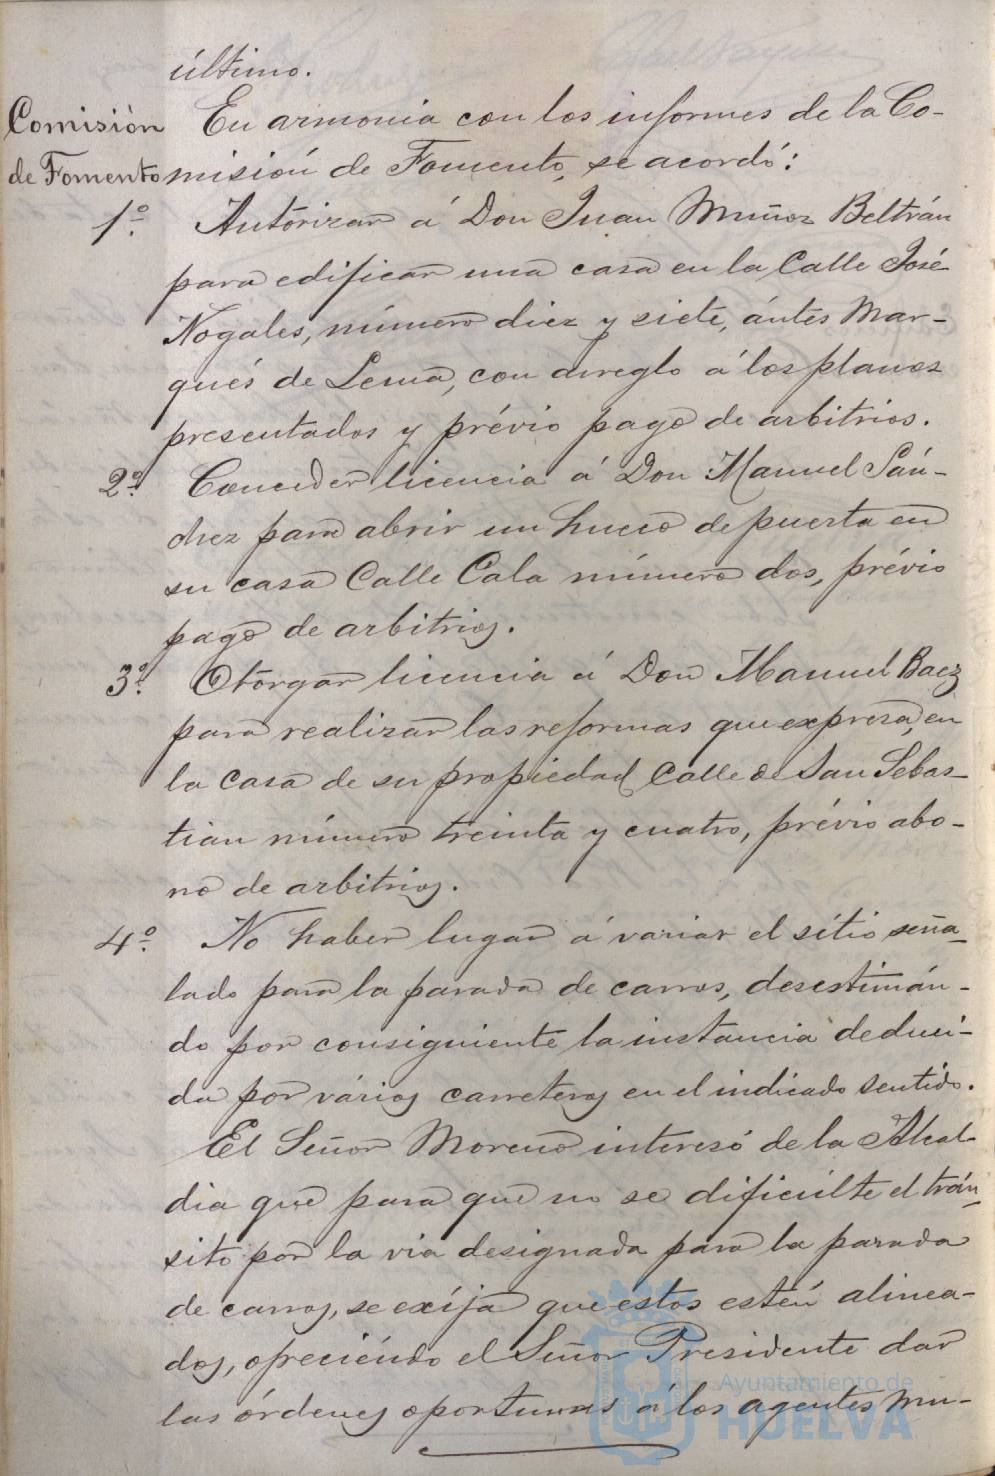 último.
Comisión En armonia con los informes de la Co-
de Fomento misión de Fomento, se acordó:
1º. Autorizar á Don Juan Muñoz Beltrán
para edificar una casa en la Calle José
Nogales, número diez y siete, ántes Mar-
qués de Lema, con arreglo á los planos
presentados y prévio pago de arbitrios.
2º. Conceder licencia á Don Manuel Sán-
chez para abrir un hueco de puerta en
su casa Calle Cala número dos, prévio
pago de arbitrios.
3º. Otorgar licencia á Don Manuel Baez
para realizar las reformas que expresa, en
la casa de su propiedad Calle de San Sebas-
tian número treinta y cuatro, prévio abo-
no de arbitrios.
4º. No haber lugar á variar el sitio seña-
lado para la parada de carros, desestimán-
do por consiguiente la instancia deduci-
da por vários carreteros en el indicado sentido.
El Señor Moreno interesó de la Alcal-
dia que para que no se dificúlte el trán-
sito por la via designada para la parada
de carros, se exíja que éstos estén alinea-
dos, ofreciéndo el Señor Presidente dar
las órdenes oportunas á los agentes mu-
Ayuntamiento de
HUELVA